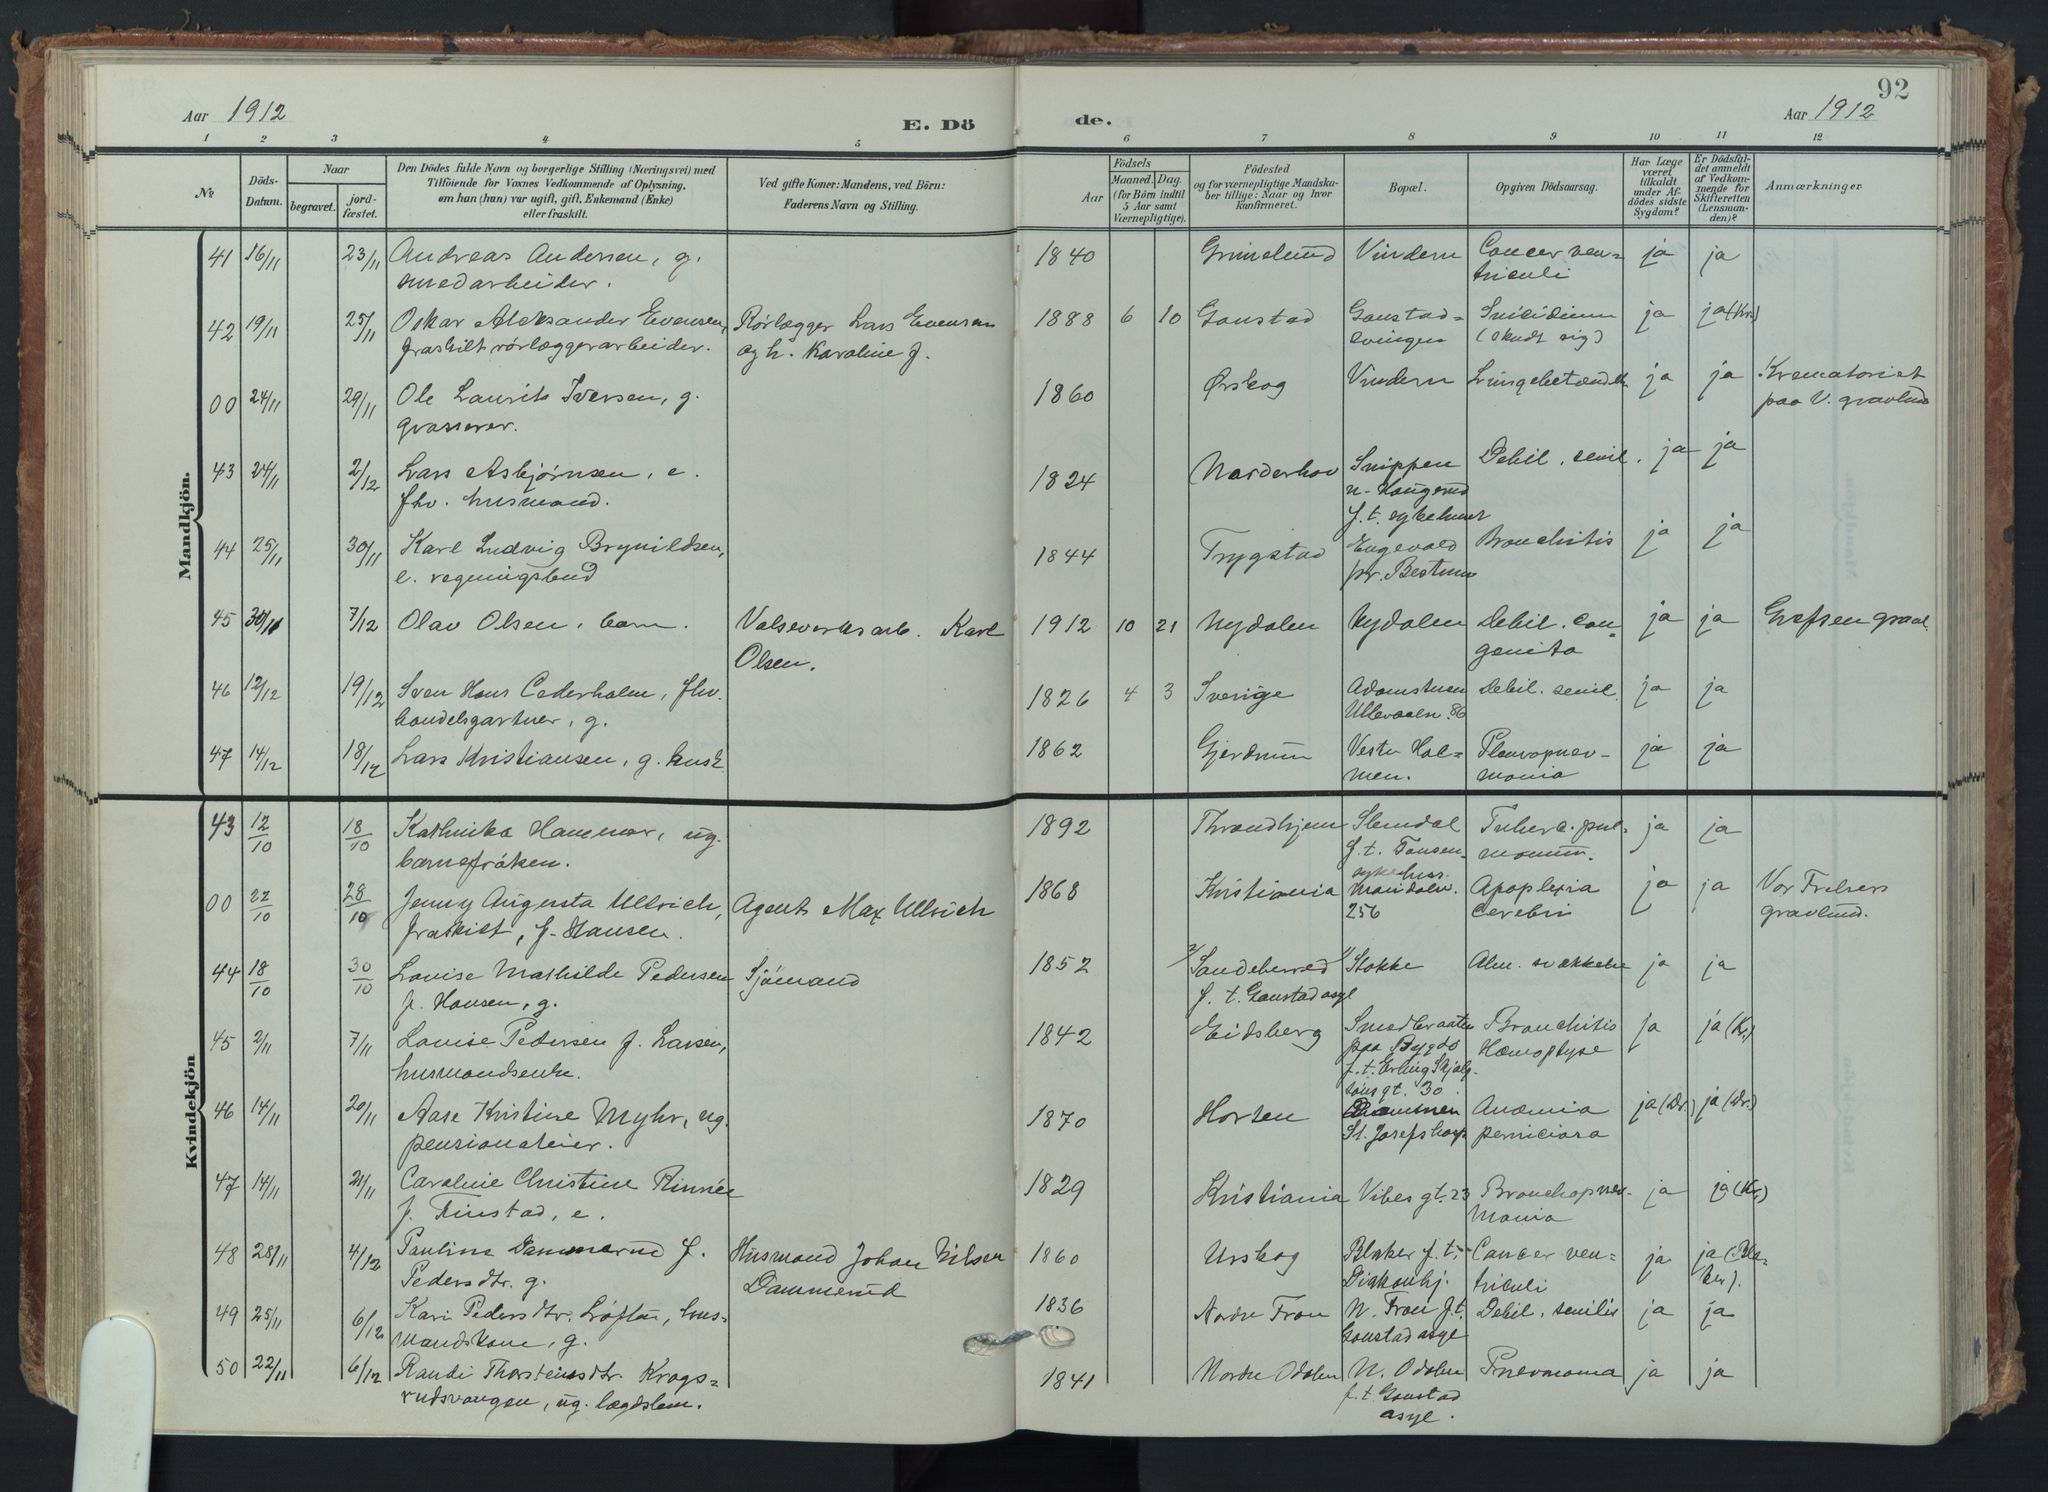 92
Aar 1912 E. Dö de. Aar 1912
1 2 3 4 5 6 7 8 9 10 11 12
No. Döds-Datum. Naar begravet. jord-fæstet. Den Dödes fulde Navn og borgerlige Stilling (Næringsvei) med Tilföiende for Voxnes Vedkommende af Oplysning, om han (hun) var ugift, gift, Enkemand (Enke) eller fraskilt. Ved gifte Koner: Mandens, ved Börn: Faderens Navn og Stilling. Födsels Aar Maaned. Dag. (for Börn indtil 5 Aar samt Værnepligtige). Födested og for værnepligtige Mandskaber tillige: Naar og hvor konfirmeret. Bopæl. Opgiven Dödsaarsag. Har Læge været tilkaldt under Afdödes sidste Sygdom? Er Dödsfaldet anmeldt af Vedkommende for Skifteretten (Lensmanden)? Anmærkninger
Mandkjön.
41 16/11 23/11 Andreas Andersen, g. 1840 Grimelund Vindern Cancer ven- ja ja
smedarbeider. triculi
42 19/11 25/11 Oskar Aleksander Evensen, Rørlægger Lars Evensen 1888 6 10 Gaustad Gaustad- Suicidium ja ja (Kr.)
fraskilt rørlæggerarbeider. og h. Karoline f. svingen (skudt sig)
00 24/11 29/11 Ole Laurits Iversen, g. 1860 Ørskog Vindern Lungebetændelse ja ja Krematoriet
grosserer. paa V. gravlund
43 24/11 2/12 Lars Asbjørnsen, e. 1824 Norderhov Snippen Debil. senil. ja ja
fhv. husmand. u. Haugerud
f. t. sykehuset
44 25/11 30/11 Karl Ludvig Brynildsen, 1844 Trygstad Engevold Bronchitis ja ja
e. regningsbud pr. Bestum
45 30/11 7/12 Olav Olsen, barn. Valseverksarb. Karl 1912 10 21 Nydalen Nydalen Debil. con- ja ja Grefsen gravl.
Olsen. genita
46 12/12 19/12 Sven Hans Cederholm, fhv. 1826 4 3 Sverige Adamstuen Debil. senil. ja ja
handelsgartner, g. Ullevaalsv. 86
47 14/12 18/12 Lars Kristiansen, g. kusk 1862 Gjerdrum Vestre Hol- Pleuropnev- ja ja
men. monia
Kvindekjön
43 12/10 18/10 Kathinka Hammer, ug. 1892 Throndhjem Slemdal Tuberc. pul- ja ja
barnefrøken. f. t. Tonsen- monum.
sykehus.
00 22/10 28/10 Jenny Augusta Ullrich, Agent Max Ullrich 1868 Kristiania Apoplexia ja ja Vor Frelsers
fraskilt, f. Hansen. 256 cerebri gravlund.
44 18/10 30/10 Lovise Mathilde Pedersen Sjömand 1852 Sandeherred Stokke Alm. svækkelse ja ja
f. Hansen, g. f. t. Gaustad asyl
45 2/11 7/11 Lovise Pedersen f. Larsen, 1842 Eidsberg Smedbraaten Bronchitis ja ja (Kr.)
husmandsenke. paa Bygdø Hæmoptyse
f. t. Erling Skjalg-
sønsgt. 30
46 14/11 20/11 Aase Kristine Myhr, ug. 1870 Horten Drammen Anæmia ja (Dr.) ja (Dr.)
pensionateier. St. Josefs hosp perniciosa
47 14/11 21/11 Caroline Christine Rinnée 1829 Kristiania Vibes gt. 23 Bronchopnev- ja ja (Kr.)
f. Finstad, e. monia
48 28/11 4/12 Pauline Dammerud f. Husmand Johan Nilsen 1860 Urskog Blaker f. t. Cancer ven- ja ja (Bla-
Pedersdtr. g. Dammerud Diakonhj. triculi ker).
49 25/11 6/12 Kari Pedersdtr. Løftun, hus- 1836 Nordre Fron N. Fron f. t. Debil. senilis ja ja
mandskone, g. Gaustad asyl
50 22/11 6/12 Randi Thorsteinsdtr. Krogs- 1841 Nordre Odalen N. Odalen Pnevmonia ja ja
rudsvangen, ug. lægdslem. f. t. Gaustad
asyl.